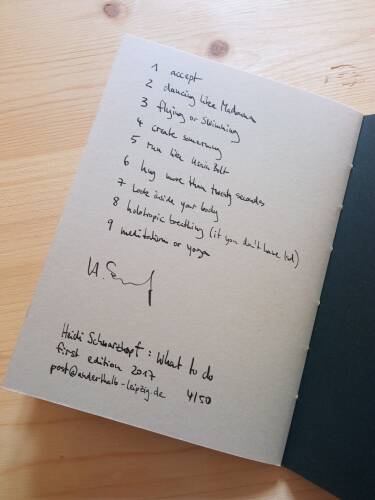 1 accept
2 dancing like Madonna
3 flying or swimming
4 create something
5 run like Usain Bolt
6 hug more than twenty seconds
7 Look inside your body
8 holotropic breathing (if you don't have lsd)
9 meditation or yoga
Heidi Schwarzkopf: What to do
first edition 2017
post@anderthalb-leipzig.de 4/50